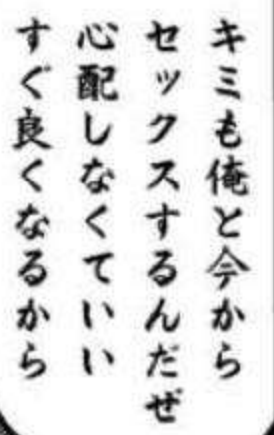 キミも俺と今から
セックスするんだぜ
心配しなくていい
すぐ良くなるから